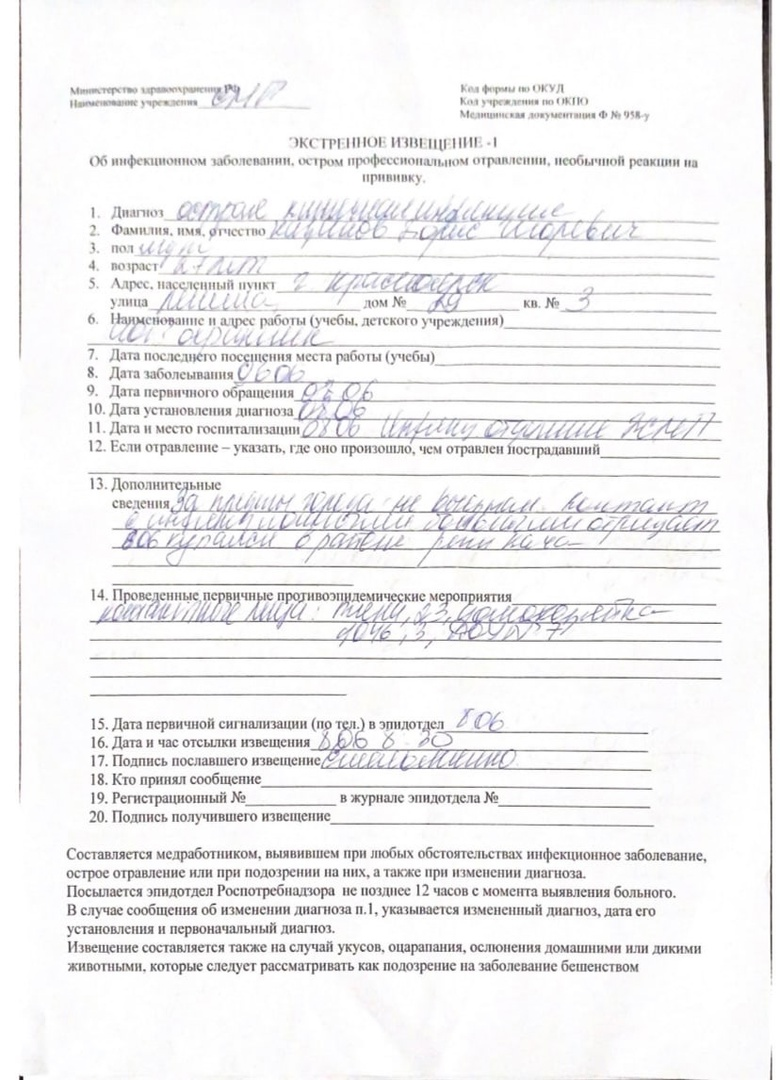 Министерство здравоохранения РФ
Наименование учреждения
Код формы по ОКУД
Код учреждения по ОКПО
Медицинская документация Ф № 958-у
ЭКСТРЕННОЕ ИЗВЕЩЕНИЕ -1
Об инфекционном заболевании, остром профессиональном отравлении, необычной реакции на
прививку.
1. Диагноз острая кишечная инфекция
2. Фамилия, имя, отчество Борис Игоревич
3. пол муж
4. возраст 27 лет
5. Адрес, населенный пункт г Красноярск
улица Ленина дом № 29 кв. № 3
6. Наименование и адрес работы (учебы, детского учреждения)
7. Дата последнего посещения места работы (учебы)
8. Дата заболеывания 06 06
9. Дата первичного обращения 08 06
10. Дата установления диагноза 08 06
11. Дата и место госпитализации 08 06 отделение БСМП
12. Если отравление – указать, где оно произошло, чем отравлен пострадавший
13. Дополнительные
сведения За пределы города не выезжал контакт
с инфекционными больными отрицает
6 06 купался в районе реки Кача
14. Проведенные первичные противоэпидемические мероприятия
контактные лица: жена, 23, домохозяйка
дочь, 3, ДОУ № 71
15. Дата первичной сигнализации (по тел.) в эпидотдел 8 06
16. Дата и час отсылки извещения 8 06 8 30
17. Подпись пославшего извещение
18. Кто принял сообщение
19. Регистрационный № в журнале эпидотдела №
20. Подпись получившего извещение
Составляется медработником, выявившем при любых обстоятельствах инфекционное заболевание,
острое отравление или при подозрении на них, а также при изменении диагноза.
Посылается эпидотдел Роспотребнадзора не позднее 12 часов с момента выявления больного.
В случае сообщения об изменении диагноза п.1, указывается измененный диагноз, дата его
установления и первоначальный диагноз.
Извещение составляется также на случай укусов, оцарапания, ослюнения домашними или дикими
животными, которые следует рассматривать как подозрение на заболевание бешенством